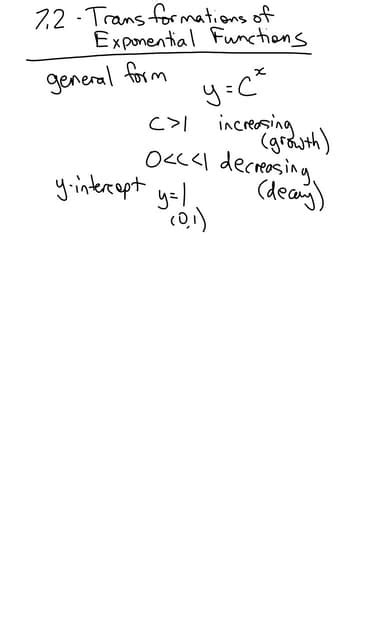 7.2 - Transformations of
Exponential Functions
general form
y = c^x
c>1 increasing
(growth)
0<c<1 decreasing
(decay)
y-intercept y=1
(0,1)